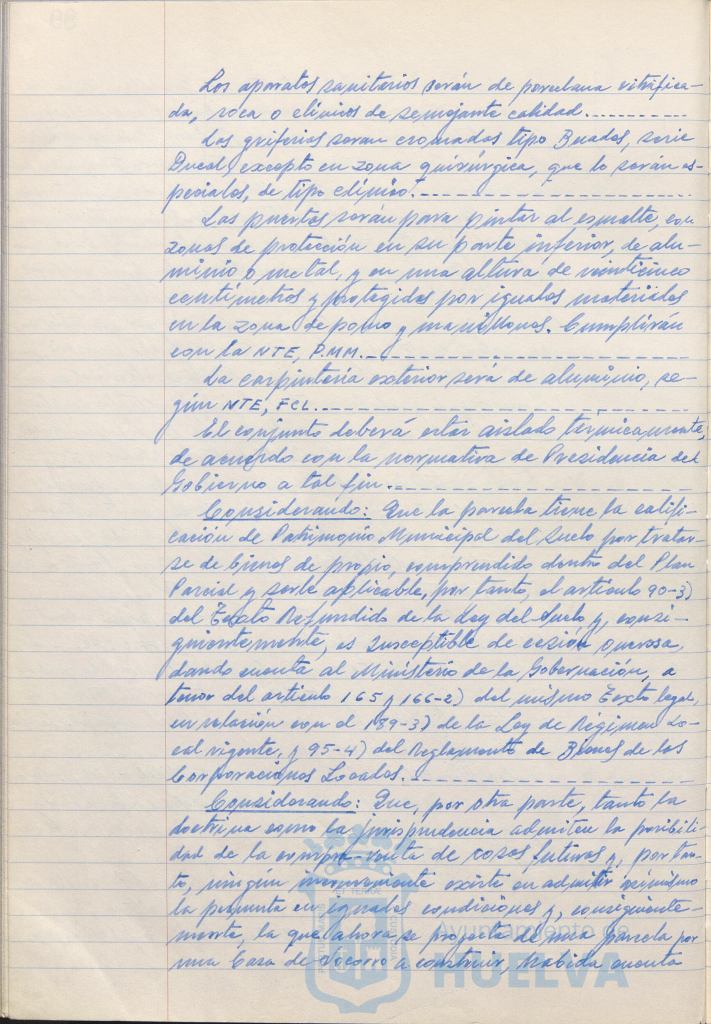 Los aparatos sanitarios serán de porcelana vitrifica-
da, roca o clínicos de semejante calidad.----------
Las griferias seran cromadas tipo Buades, serie
Ducal, excepto en zona quirúrgica, que lo serán es-
peciales, de tipo clínico.----------
Las puertas serán para pintar al esmalte, con
zonas de protección en su parte inferior, de alu-
minio o metal, y en una altura de veinticinco
centímetros y protegidas por iguales materiales
en la zona de pomo y manillones. Cumplirán
con la NTE, P.MM.----------
La carpintería exterior será de aluminio, se-
gún NTE, FCL.----------
El conjunto deberá estar aislado termicamente,
de acuerdo con la normativa de Presidencia del
Gobierno a tal fin.----------
Considerando: Que la parcela tiene la califi-
cación de Patrimonio Municipal del Suelo por tratar-
se de bienes de propio, comprendido dentro del Plan
Parcial y serle aplicable, por tanto, el artículo 90-3)
del Texto Refundido de la Ley del Suelo y, consi-
guientemente, es susceptible de cesión onerosa,
dando cuenta al Ministerio de la Gobernación, a
tenor del artículo 165 y 166-2) del mismo Texto legal,
en relación con el 189-3) de la Ley de Régimen Lo-
cal vigente, y 95-4) del Reglamento de Bienes de las
Corporaciones Locales.----------
Considerando: Que, por otra parte, tanto la
doctrina como la jurisprudencia admiten la posibili-
dad de la compra-venta de cosas futuras y, por tan-
to, ningún inconveniente existe en admitir asimismo
la permuta en iguales condiciones y, consiguiente-
mente, la que ahora se proyecta de una parcela por
una Casa de Socorro a construir, habida cuenta
Ayuntamiento de
HUELVA